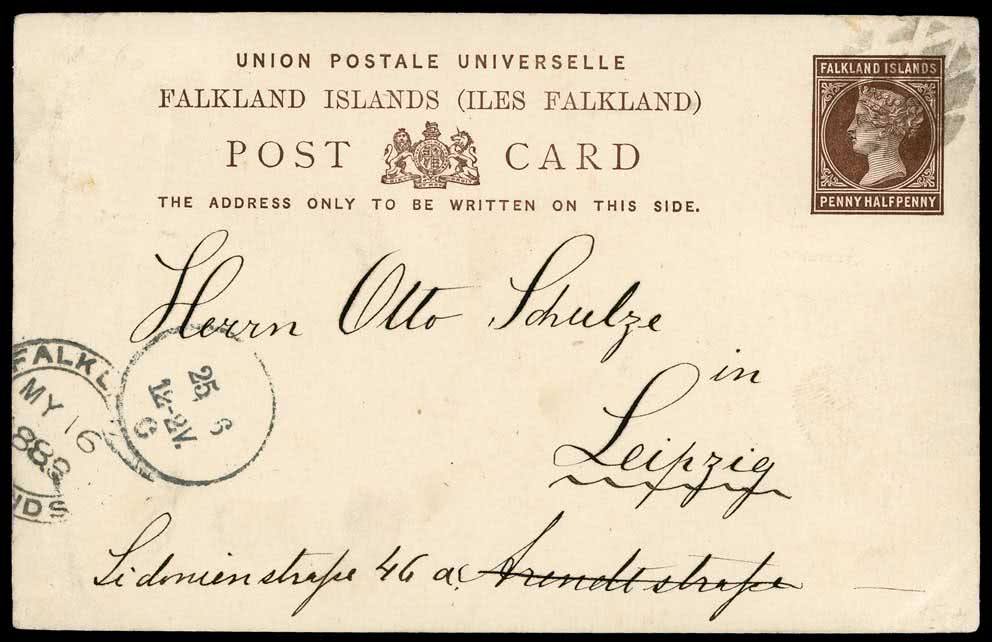 UNION POSTALE UNIVERSELLE
FALKLAND ISLANDS (ILES FALKLAND)
POST CARD
THE ADDRESS ONLY TO BE WRITTEN ON THIS SIDE.
FALKLAND ISLANDS
PENNY HALFPENNY
Herrn Otto Schulze
in
Leipzig
Sidonienstraße 46 a. Arendtstraße
FALKL
MY 16
NDS
25 6
12-2N.